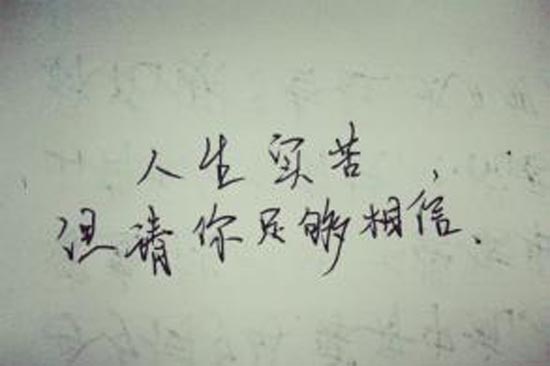 人生实苦
但请你足够相信.